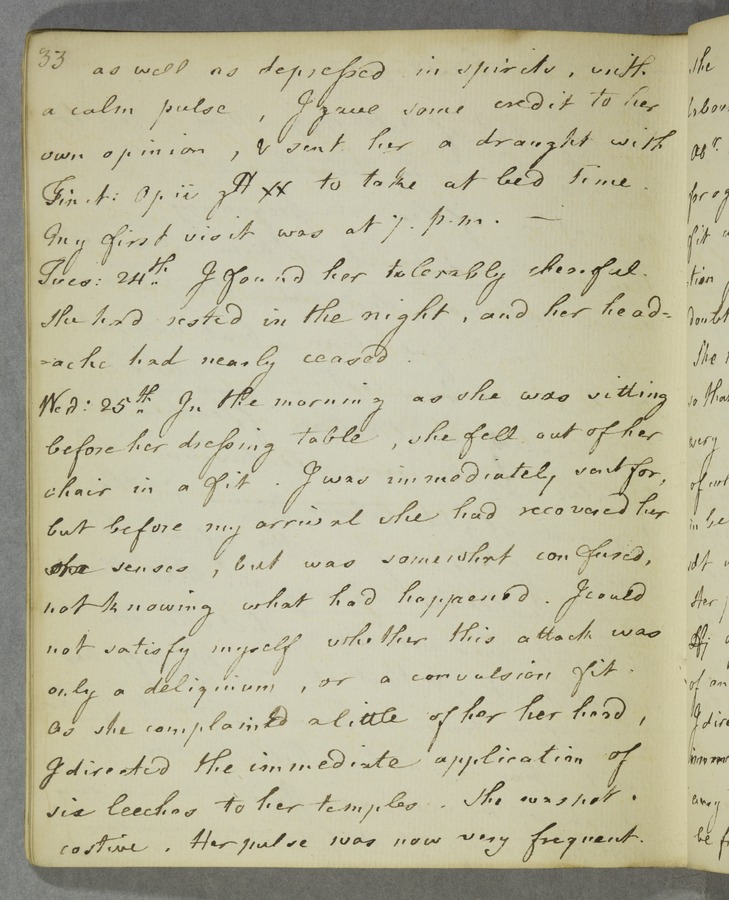 33
as well as depressed in spirits, with
a calm pulse, I gave some credit to her
own opinion, & sent her a draught with
Tinct: Opii gtt xx to take at bed time.
My first visit was at 7. p.m. —
Tues: 24th. I found her tolerably cheerful.
She had rested in the night, and her head=
=ache had nearly ceased.
Wed: 25th. In the morning as she was sitting
before her dressing table, she fell out of her
chair in a fit. I was immediately sent for,
but before my arrival she had recovered her
senses, but was somewhat confused,
not knowing what had happened. I could
not satisfy myself whether this attack was
only a deliquium, or a convulsion fit.
As she complained a little of her her head,
I directed the immediate application of
six leeches to her temples. She was not
costive. Her pulse was now very frequent.
she
fit
tion
doubt
She
very
in
Her
be